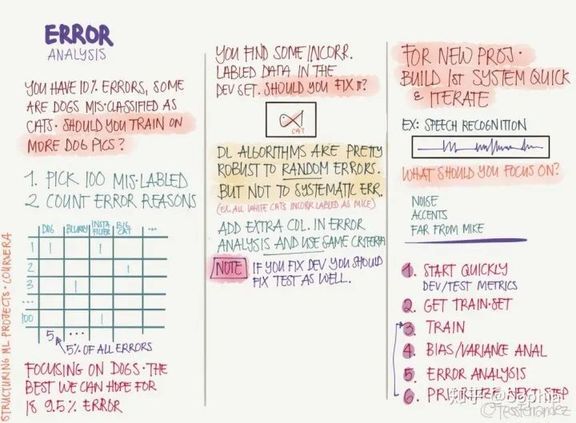 ERROR
ANALYSIS
YOU HAVE 10% ERRORS, SOME
ARE DOGS MIS-CLASSIFIED AS
CATS. SHOULD YOU TRAIN ON
MORE DOG PICS?
1. PICK 100 MIS-LABLED
2 COUNT ERROR REASONS
DOG BLURRY INSTA FILTER BIG CAT ...
1 1 1
2 1
3 1
⋮
100 1
5 ...
5% OF ALL ERRORS
FOCUSING ON DOGS. THE
BEST WE CAN HOPE FOR
IS 9.5% ERROR
STRUCTURING ML PROJECTS · COURSERA
YOU FIND SOME INCORR.
LABLED DATA IN THE
DEV SET. SHOULD YOU FIX IT?
CAT
DL ALGORITHMS ARE PRETTY
ROBUST TO RANDOM ERRORS.
BUT NOT TO SYSTEMATIC ERR.
(EX. ALL WHITE CATS INCORR. LABLED AS MICE)
ADD EXTRA COL. IN ERROR
ANALYSIS AND USE SAME CRITERIA
NOTE IF YOU FIX DEV YOU SHOULD
FIX TEST AS WELL.
FOR NEW PROJ.
BUILD 1st SYSTEM QUICK
& ITERATE
EX: SPEECH RECOGNITION
WHAT SHOULD YOU FOCUS ON?
NOISE
ACCENTS
FAR FROM MIKE
1. START QUICKLY
DEV/TEST METRICS
2. GET TRAIN-SET
3. TRAIN
4. BIAS/VARIANCE ANAL
5. ERROR ANALYSIS
6. NEXT STEP
@TessFerrandez